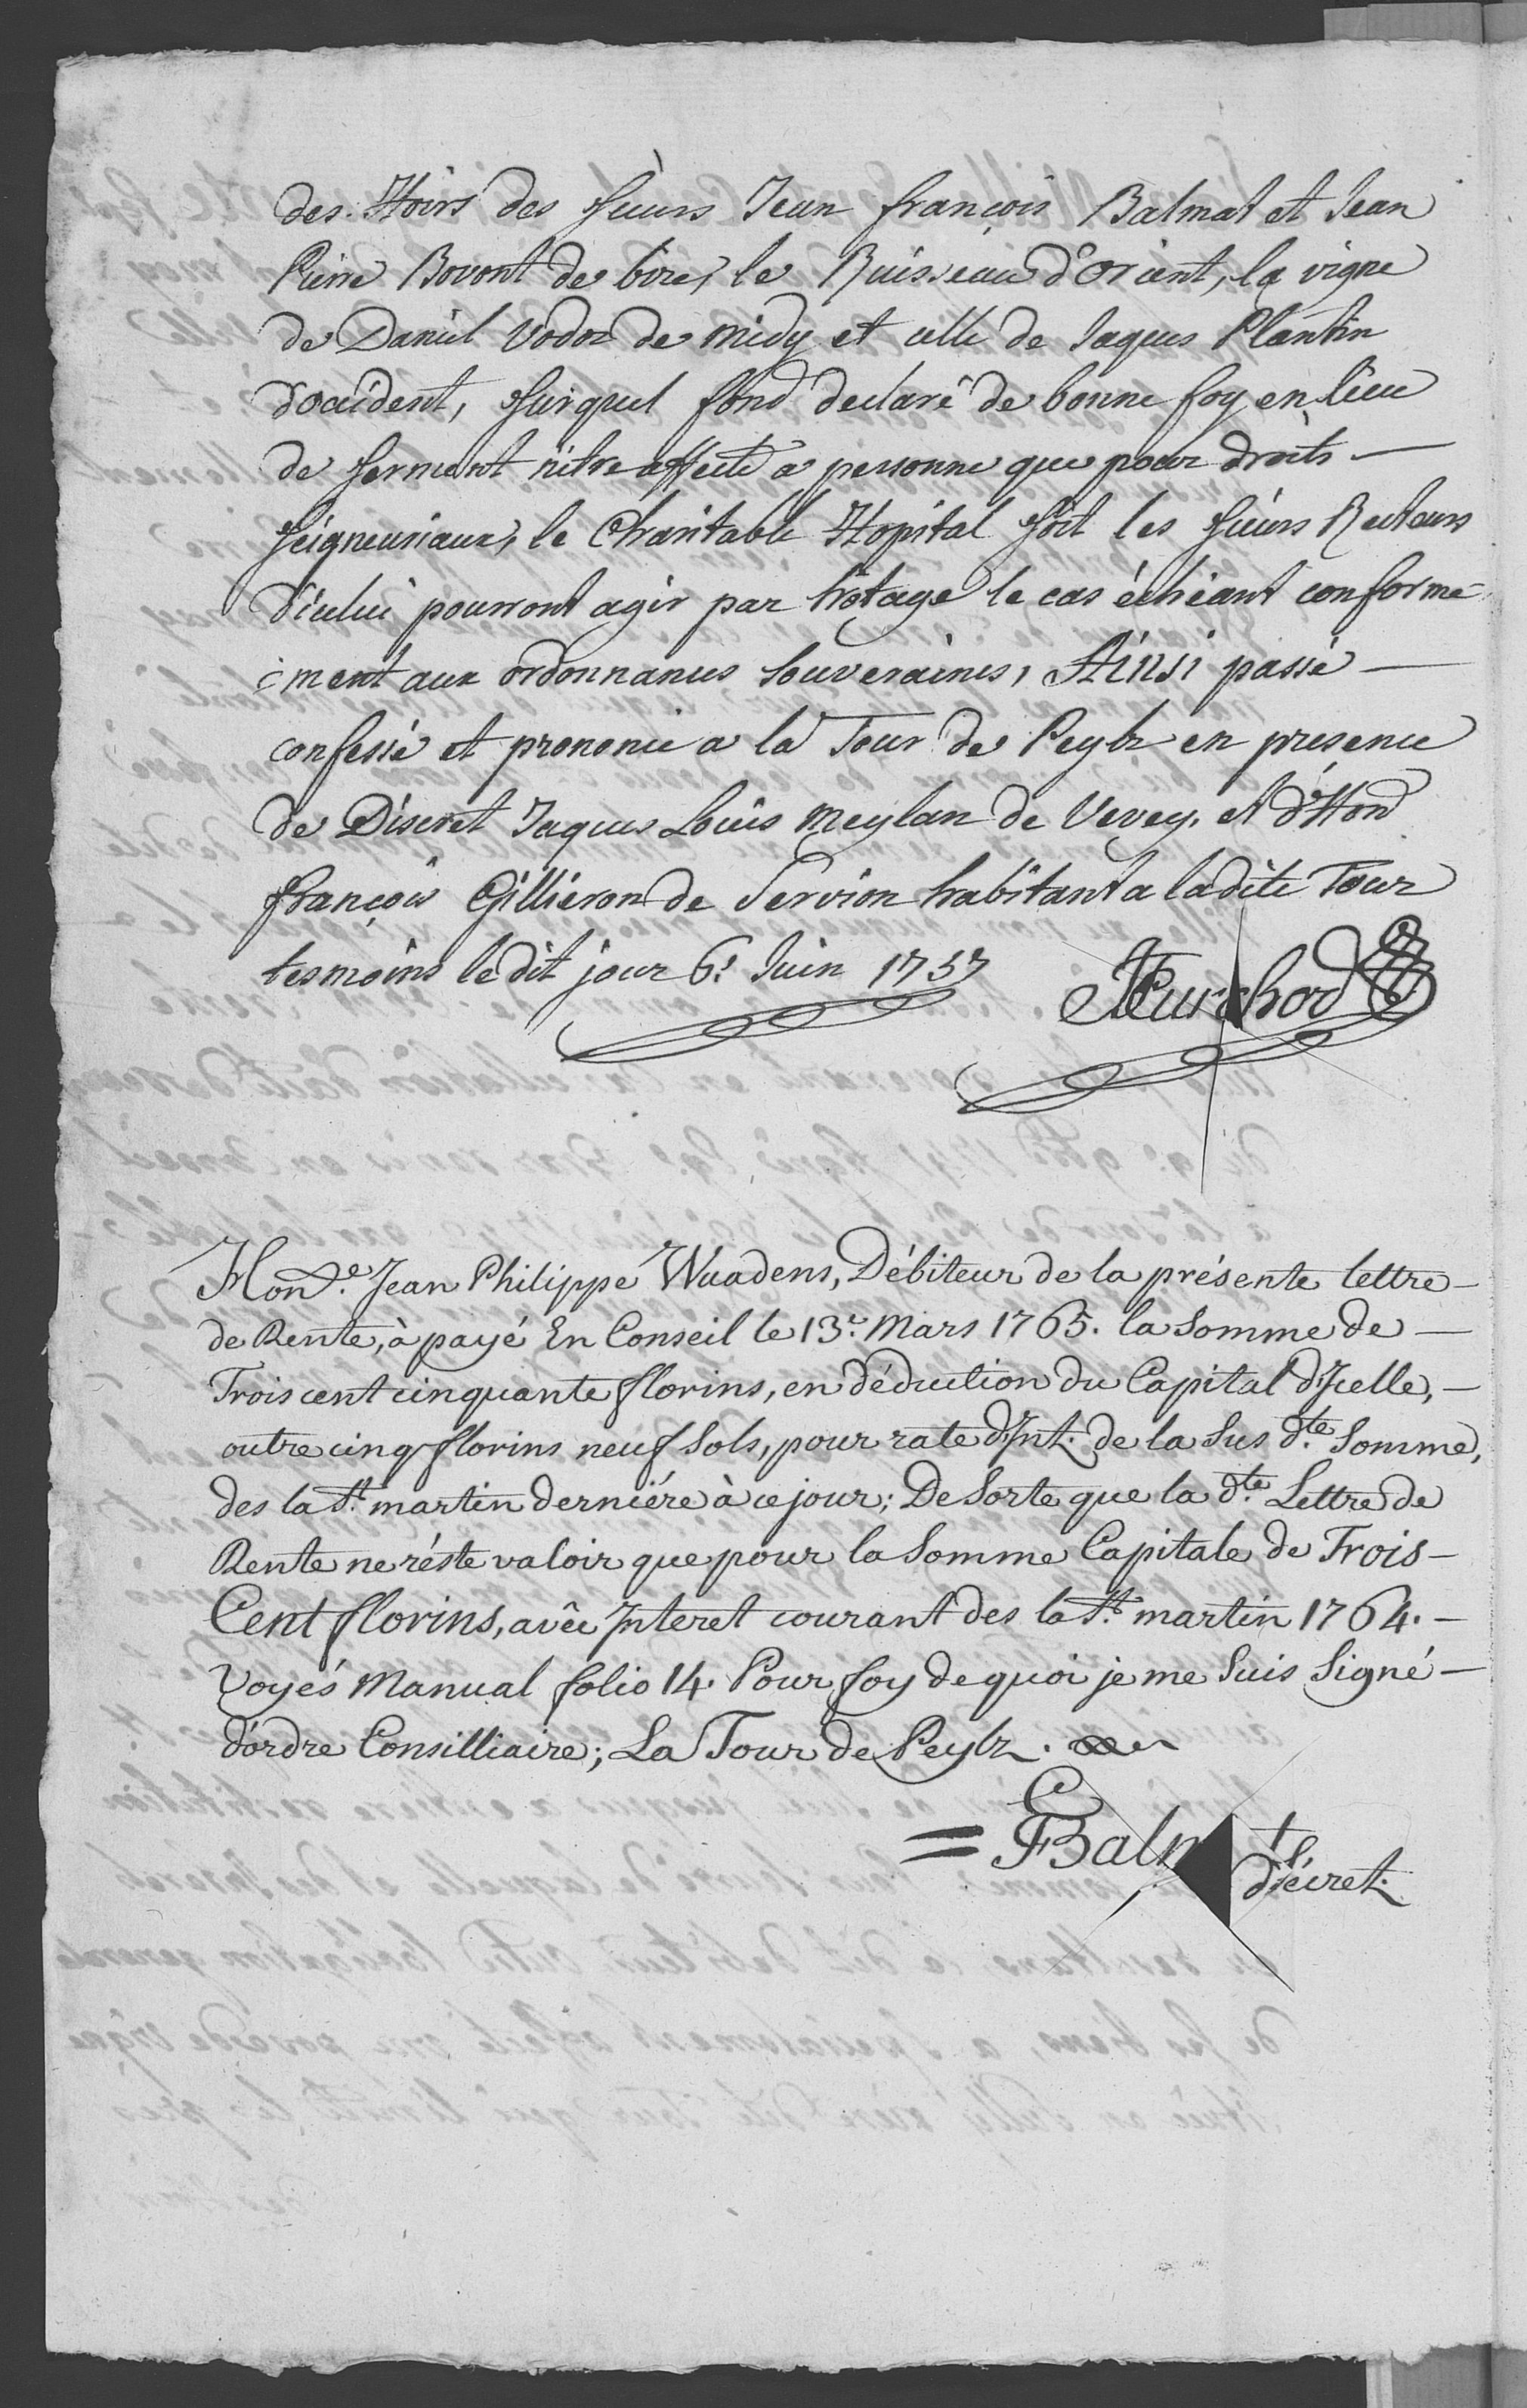 des Hoirs des sieurs Jean françois Balmat et Jean
Pierre Bovont de bize, le Ruisseau d'orient, la vigne
de Daniel Vodoz de midy et celle de Jaques Plantin
d'occident, surquel fond declaré de bonne foy en lieu
de serment n'etre affecté a personne que pour droits —
seigneuriaux, le Charitable Hopital soit les sieurs Recteurs
d'icelui pourront agir par hotage le cas échéant conforme
:ment aux ordonnances souveraines, Ainsi passé —
confessé et prononcé a la Tour de Peylz en presence
de Discret Jaques Loüis Meylan de Vevey, et d'Hon.d
françois Gilliéron de Servion habitant a ladite Tour
tesmoins le dit jour 6.e Juin 1757
Hon.de Jean Philippe Wuadens, Débiteur de la présente lettre —
de Rente, à payé En Conseil le 13.e Mars 1765. la Somme de —
Trois cent cinquante florins, en déduction du Capital d'Jcelle, —
outre cinq florins neuf sols, pour rate d'Jnt. de la Sus d.te Somme,
des la S.t martin derniére à ce jour; De Sorte que la d.te Lettre de
Rente ne réste valoir que pour la Somme Capitale de Trois —
Cent florins, avêc Jnteret courant des la S.t martin 1764. —
Voyés Manual folio 14. Pour foy de quoi je me Suis Signé —
d'ordre Consilliaire; La Tour de Peylz.
= Balmat
Sécret.